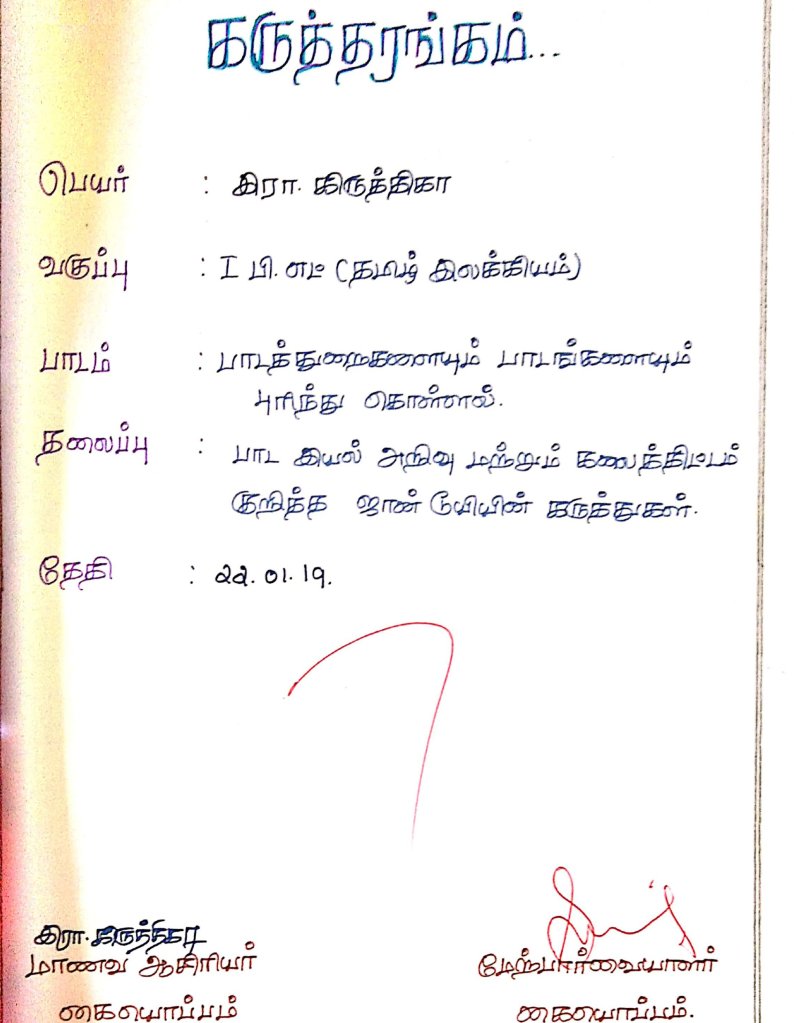 கருத்தரங்கம்...
பெயர் : இரா. கிருத்திகா
வகுப்பு : I பி. எட் (தமிழ் இலக்கியம்)
பாடம் : பாடத்துறைகளையும் பாடங்களையும்
புரிந்து கொள்ளல்.
தலைப்பு : பாட இயல் அறிவு மற்றும் கலைத்திட்டம்
குறித்த ஜான் டூயியின் கருத்துகள்.
தேதி : 22.01.19.
இரா. கிருத்திகா
மாணவ ஆசிரியர் மேற்பார்வையாளர்
கையொப்பம் கையொப்பம்.